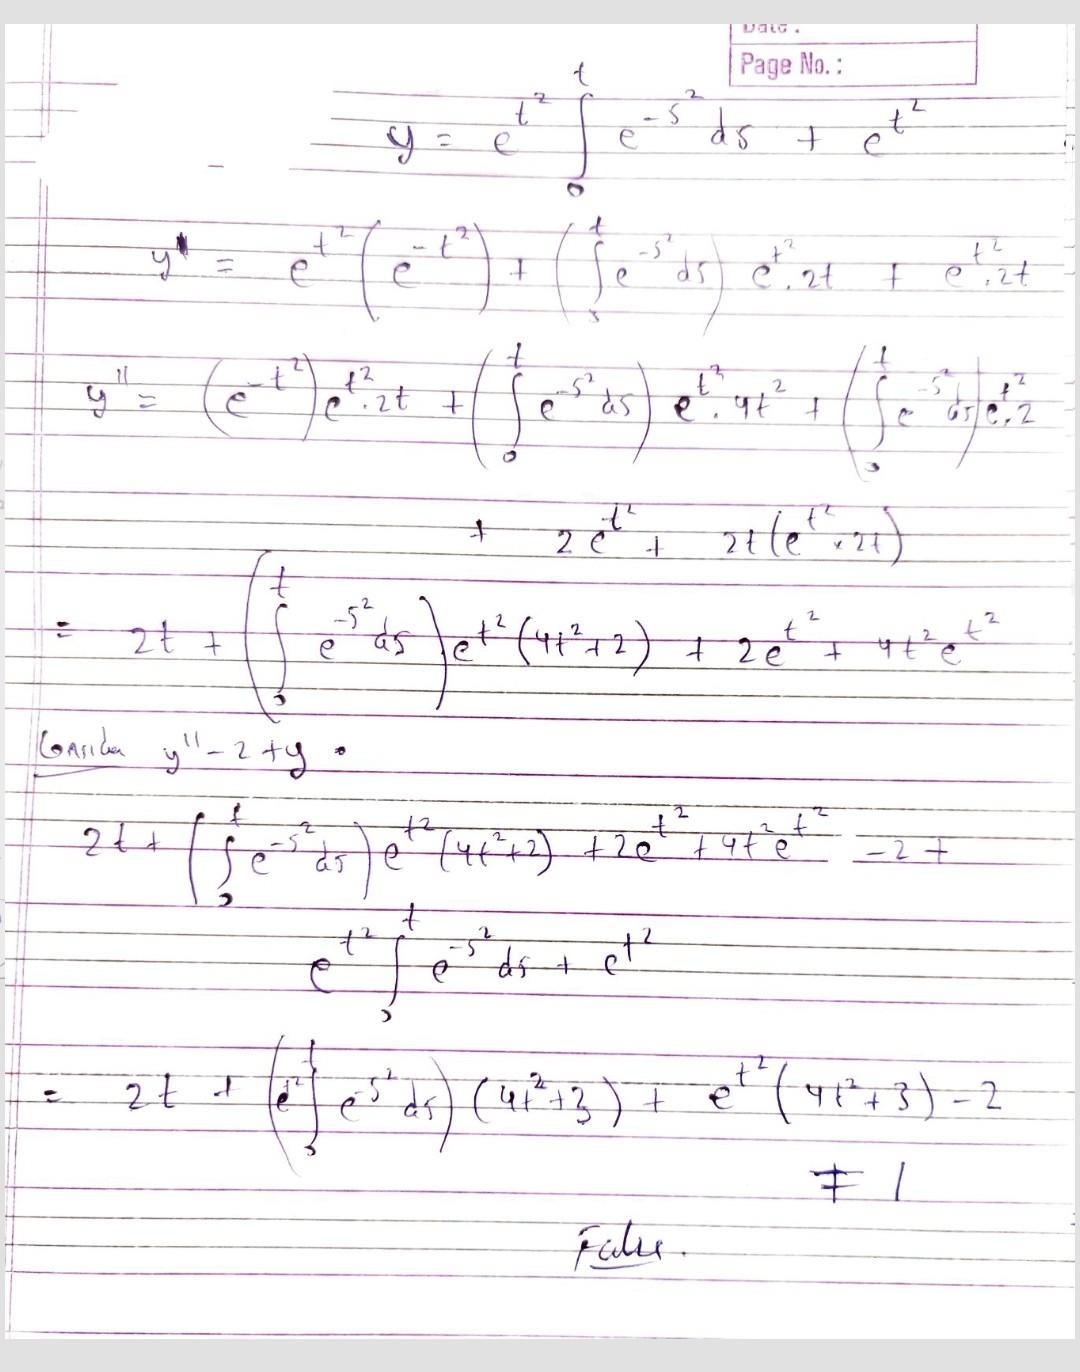 Date :
Page No. :
y = e^{t^2} ∫_0^t e^{-s^2} ds + e^{t^2}
y' = e^{t^2} (e^{-t^2}) + (∫_0^t e^{-s^2} ds) e^{t^2}.2t + e^{t^2}.2t
y'' = (e^{-t^2}) e^{t^2}.2t + (∫_0^t e^{-s^2} ds) e^{t^2}.4t^2 + (∫_0^t e^{-s^2} ds) e^{t^2}.2
+ 2e^{t^2} + 2t(e^{t^2} × 2t)
= 2t + (∫_0^t e^{-s^2} ds) e^{t^2} (4t^2+2) + 2e^{t^2} + 4t^2 e^{t^2}
Consider y'' - 2 + y .
2t + (∫_0^t e^{-s^2} ds) e^{t^2} (4t^2+2) + 2e^{t^2} + 4t^2 e^{t^2} - 2 +
e^{t^2} ∫_0^t e^{-s^2} ds + e^{t^2}
= 2t + (e^{t^2} ∫_0^t e^{-s^2} ds) (4t^2+3) + e^{t^2} (4t^2+3) - 2
≠ 1
False.